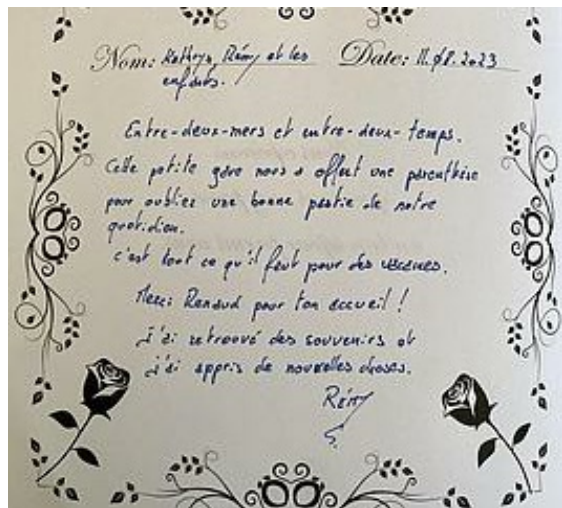 Nom: Kathryn, Rémy et les
enfants.
Date: 11.08.2023
Entre-deux-mers et entre-deux-temps.
Cette petite gare nous a offert une parenthèse
pour oublier une bonne partie de notre
quotidien.
C'est tout ce qu'il faut pour des vacances.
Merci Renaud pour ton accueil !
J'ai retrouvé des souvenirs et
j'ai appris de nouvelles choses.
Rémy